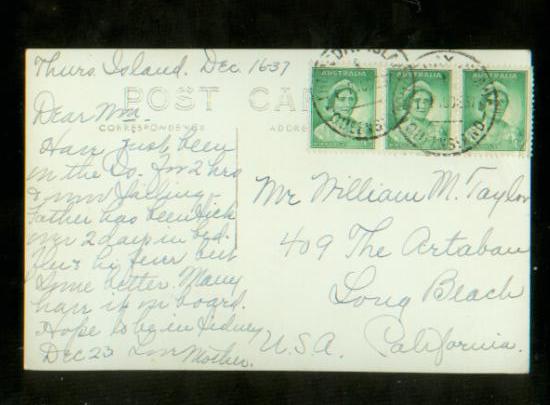 Thurs. Island. Dec. 16 37
POST CAR
CORRESPONDENCE
ADDRE
AUSTRALIA
AUSTRALIA
AUSTRALIA
QUEENS
QUEENSLAND
Dear Wm.
Have just been
in the Co. for 2 hrs
& now sailing.
Father has been sick
over 2 days in bed.
Flu & hi fever but
some better. Many
have it on board.
Hope to be in Sidney
Dec 23 Mother.
Mr William M. Taylor
409 The Artaban
Long Beach
U.S.A. California.